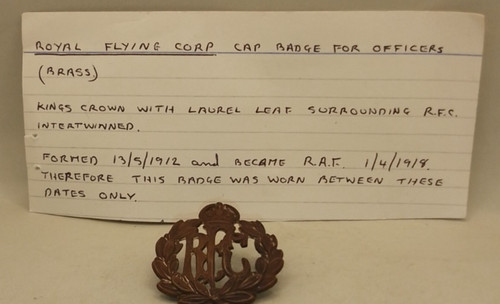 ROYAL FLYING CORP CAP BADGE FOR OFFICERS
(BRASS)
KINGS CROWN WITH LAUREL LEAF SURROUNDING R.F.C.
INTERTWINNED.
FORMED 13/5/1912 and BECAME R.A.F. 1/4/1918.
THEREFORE THIS BADGE WAS WORN BETWEEN THESE
DATES ONLY.
RFC